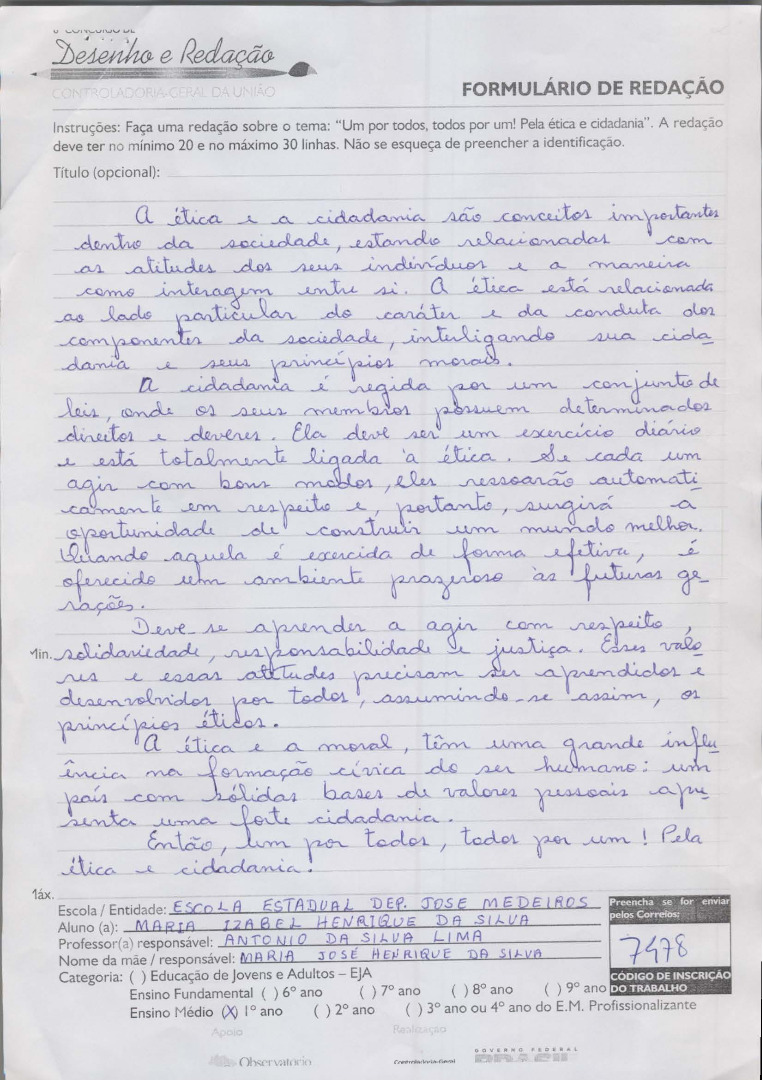 6º CONCURSO DE
Desenho e Redação
CONTROLADORIA-GERAL DA UNIÃO
FORMULÁRIO DE REDAÇÃO
Instruções: Faça uma redação sobre o tema: "Um por todos, todos por um! Pela ética e cidadania". A redação
deve ter no mínimo 20 e no máximo 30 linhas. Não se esqueça de preencher a identificação.
Título (opcional):
A ética e a cidadania são conceitos importantes
dentro da sociedade, estando relacionadas com
as atitudes dos seus indivíduos e a maneira
como interagem entre si. A ética está relacionada
ao lado particular do caráter e da conduta dos
componentes da sociedade, interligando sua cida
dania e seus princípios morais.
A cidadania é regida por um conjunto de
leis, onde os seus membros possuem determinados
direitos e deveres. Ela deve ser um exercício diário
e está totalmente ligada à ética. Se cada um
agir com bons modos, eles ressoarão automati
camente em respeito e, portanto, surgirá a
oportunidade de construir um mundo melhor.
Quando aquela é exercida de forma efetiva, é
oferecido um ambiente prazeroso às futuras ge
rações.
Deve-se aprender a agir com respeito,
Min. solidariedade, responsabilidade e justiça. Esses valo
res e essas atitudes precisam ser aprendidos e
desenvolvidos por todos, assumindo-se assim, os
princípios éticos.
A ética e a moral, têm uma grande influ
ência na formação cívica do ser humano: um
país com sólidas bases de valores pessoais apre
senta uma forte cidadania.
Então, um por todos, todos por um! Pela
ética e cidadania!
Máx.
Escola / Entidade: ESCOLA ESTADUAL DEP. JOSE MEDEIROS
Aluno (a): MARIA IZABEL HENRIQUE DA SILVA
Professor(a) responsável: ANTONIO DA SILVA LIMA
Nome da mãe / responsável: MARIA JOSÉ HENRIQUE DA SILVA
Preencha se for enviar
pelos Correios:
7478
CÓDIGO DE INSCRIÇÃO
DO TRABALHO
Categoria: ( ) Educação de Jovens e Adultos – EJA
Ensino Fundamental ( ) 6º ano ( ) 7º ano ( ) 8º ano ( ) 9º ano
Ensino Médio (X) 1º ano ( ) 2º ano ( ) 3º ano ou 4º ano do E.M. Profissionalizante
Apoio
Realização
Observatório
Controladoria-Geral
GOVERNO FEDERAL
BRASIL